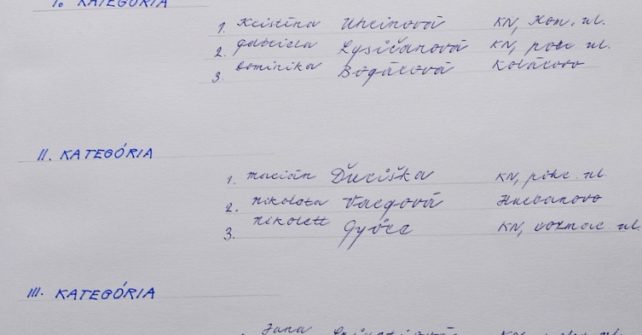 I. KATEGÓRIA
1. Kristína Uhrinová KN, Kom. ul.
2. Gabriela Lysičanová KN, pohr. ul.
3. Dominika Bogárová Kolárovo
II. KATEGÓRIA
1. Marián Ďuriška KN, pohr. ul.
2. Nikoleta Vargová Hurbanovo
3. Nikolett Györe KN, rozmar. ul.
III. KATEGÓRIA
Jana